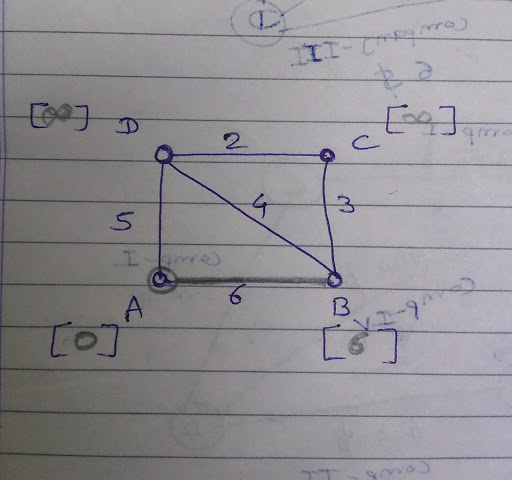 [∞] D 2 C [∞]
5 4 3
A 6 B
[0] [6]